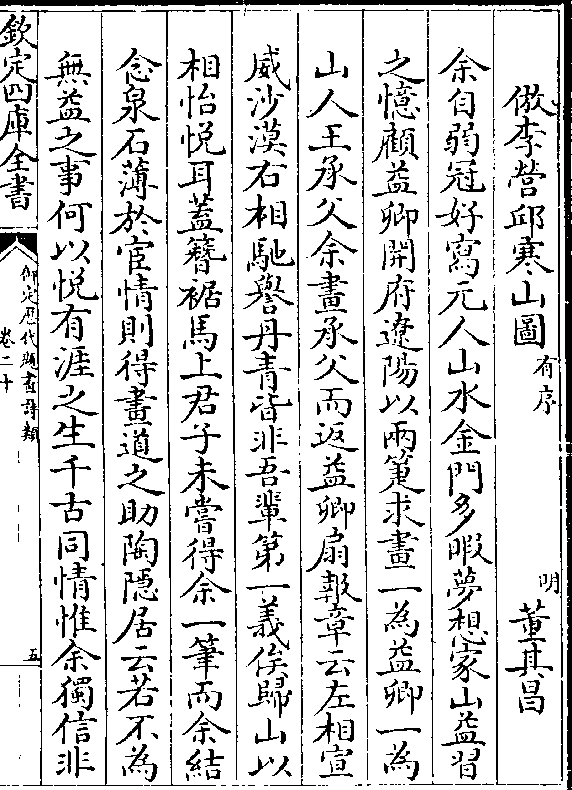 倣李營邱寒山圖 有序 明 董其昌
余自弱冠好寫元人山水金門多暇夢想家山益習
之憶顧益卿開府遼陽以兩箑求畫一為益卿一為
山人王承父余畫承父而返益卿扇報章云左相宣
威沙漠右相馳譽丹青皆非吾輩第一義俟歸山以
相怡悦耳蓋簪裾馬上君子未嘗得余一筆而余結
念泉石薄於宦情則得畫道之助陶隠居云若不為
無益之事何以悦有涯之生千古同情惟余獨信非
欽定四庫全書
御定歴代題畫詩類
卷二十
五